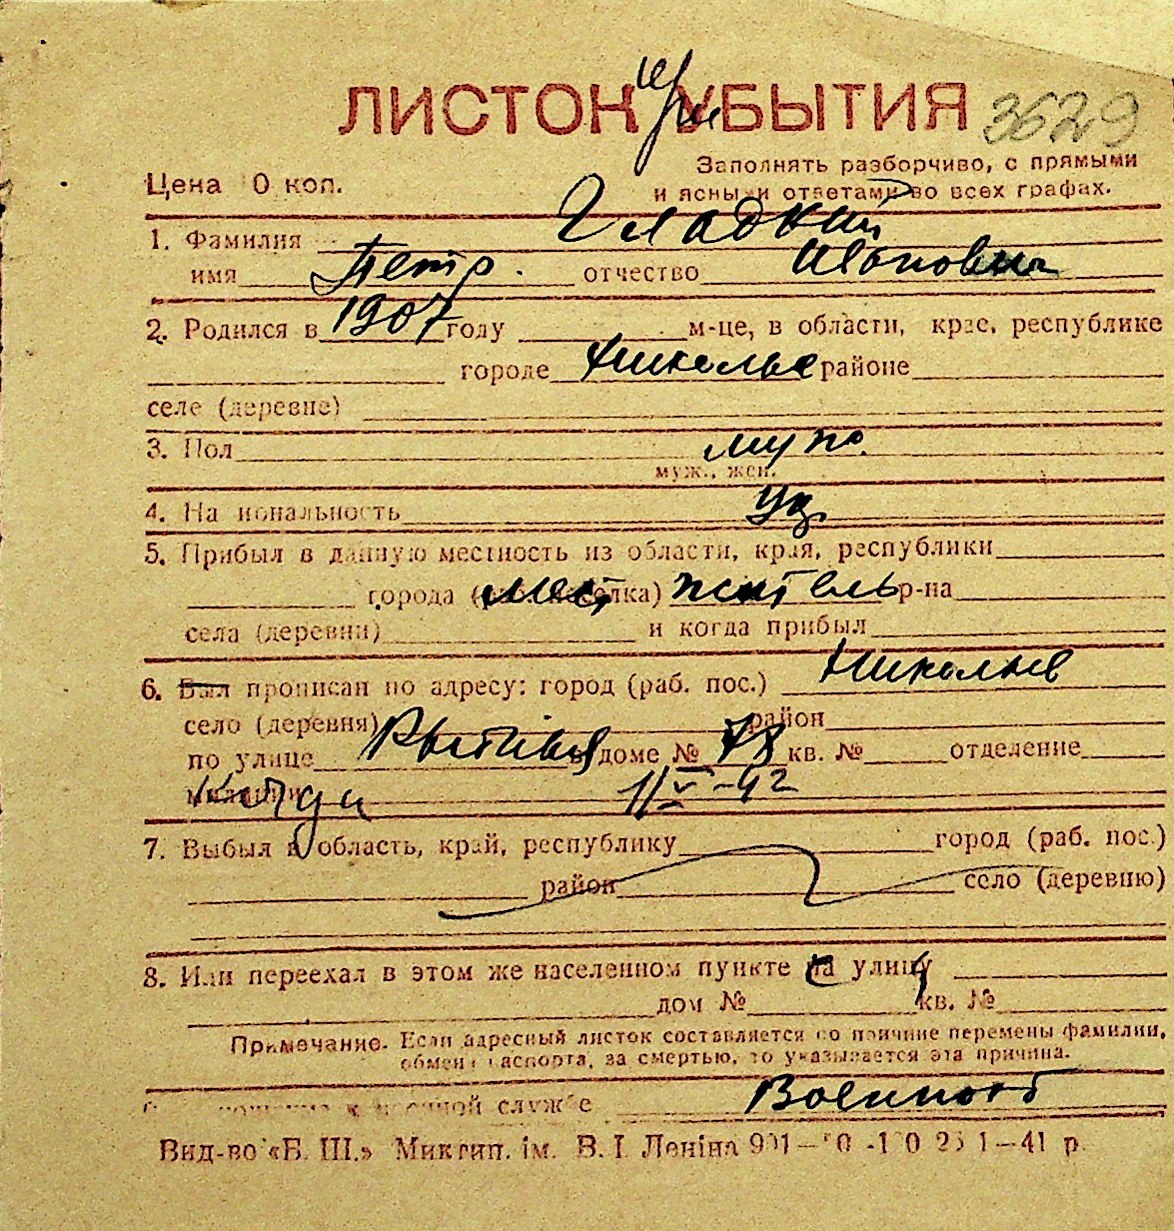 ЛИСТОК УБЫТИЯ 3629
при
Заполнять разборчиво, с прямыми
Цена 0 коп. и ясными ответами во всех графах.
1. Фамилия Гладкий
имя Петр. отчество Иванович
2. Родился в 1907 году м-це, в области, крае, республике
городе Николаев районе
селе (деревне)
3. Пол муж.
муж., жен.
4. На иональность Ук.
5. Прибыл в данную местность из области, края, республики
города (раб. поселка) мест житель р-на
села (деревни) и когда прибыл
6. Был прописан по адресу: город (раб. пос.) Николаев
село (деревня) район
по улице доме № 78 кв. № отделение
милиции Когда 1/V-42
7. Выбыл в область, край, республику город (раб. пос.)
район село (деревню)
8. Или переехал в этом же населенном пункте на улицу
дом № кв. №
Примечание. Если адресный листок составляется по причине перемены фамилии,
обмена паспорта, за смертью, то указывается эта причина.
к военной службе Военнооб
Вид-во «Б. Ш.» Микгип. ім. В. І. Леніна 1—41 р.